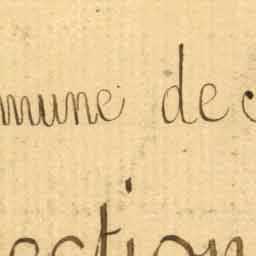 mune de c
ection